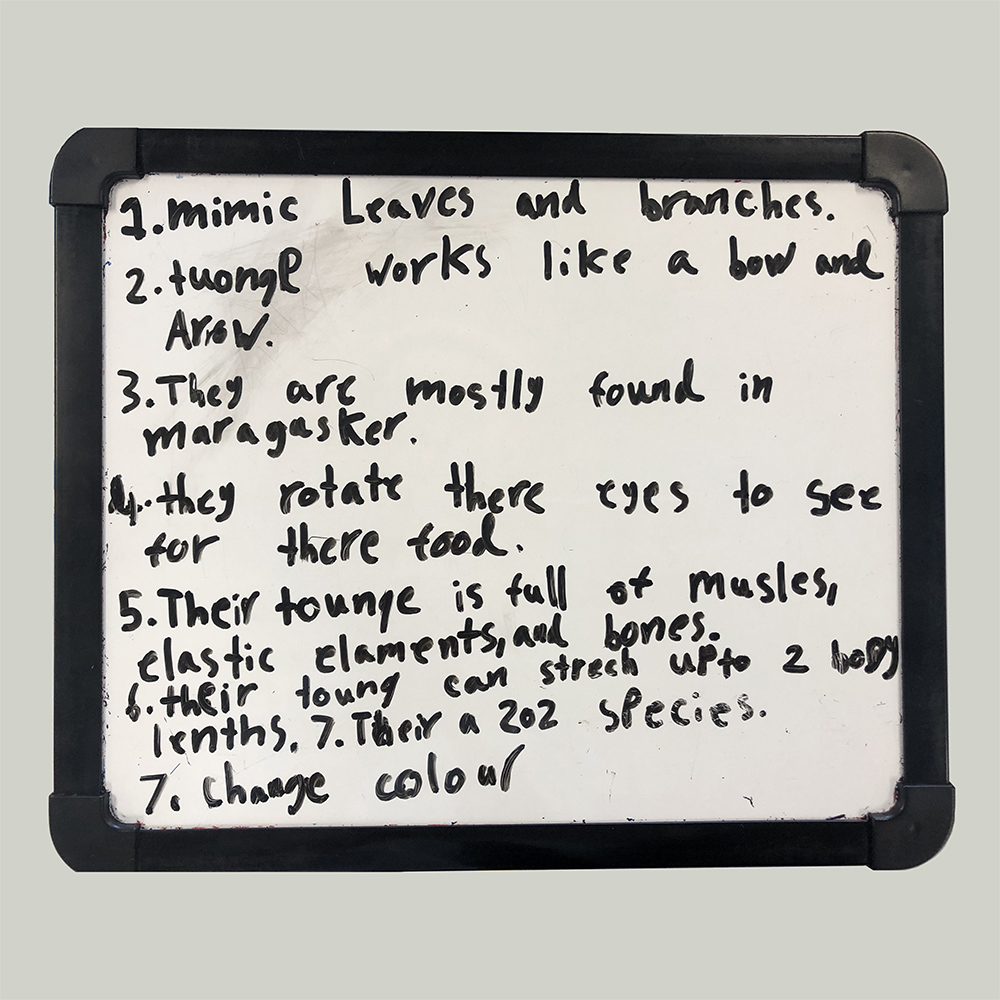 1.mimic Leaves and branches.
2.tuongl works like a bow and
Arrow.
3.They are mostly found in
maragasker.
4.they rotate there eyes to see
for there food.
5.Their tounge is full of musles,
elastic elaments,and bones.
6.their toung can strech upto 2 body
lenths. 7.Their a 202 species.
7. change colour